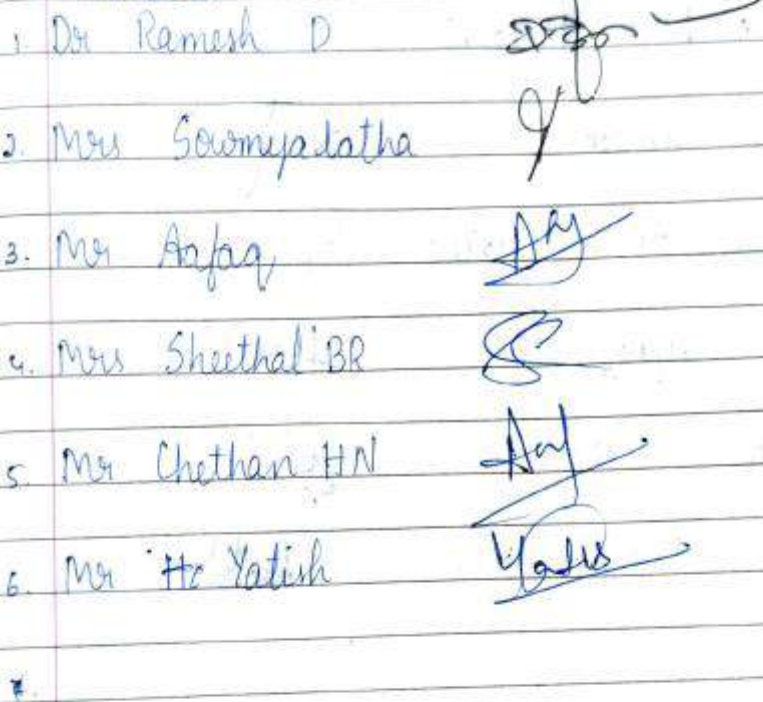 1. Dr Ramesh D
2. Mrs Sowmyalatha
3. Mr Aafaq
4. Mrs Sheethal BR
5. Mr Chethan HN
6. Mr Hc Yatish